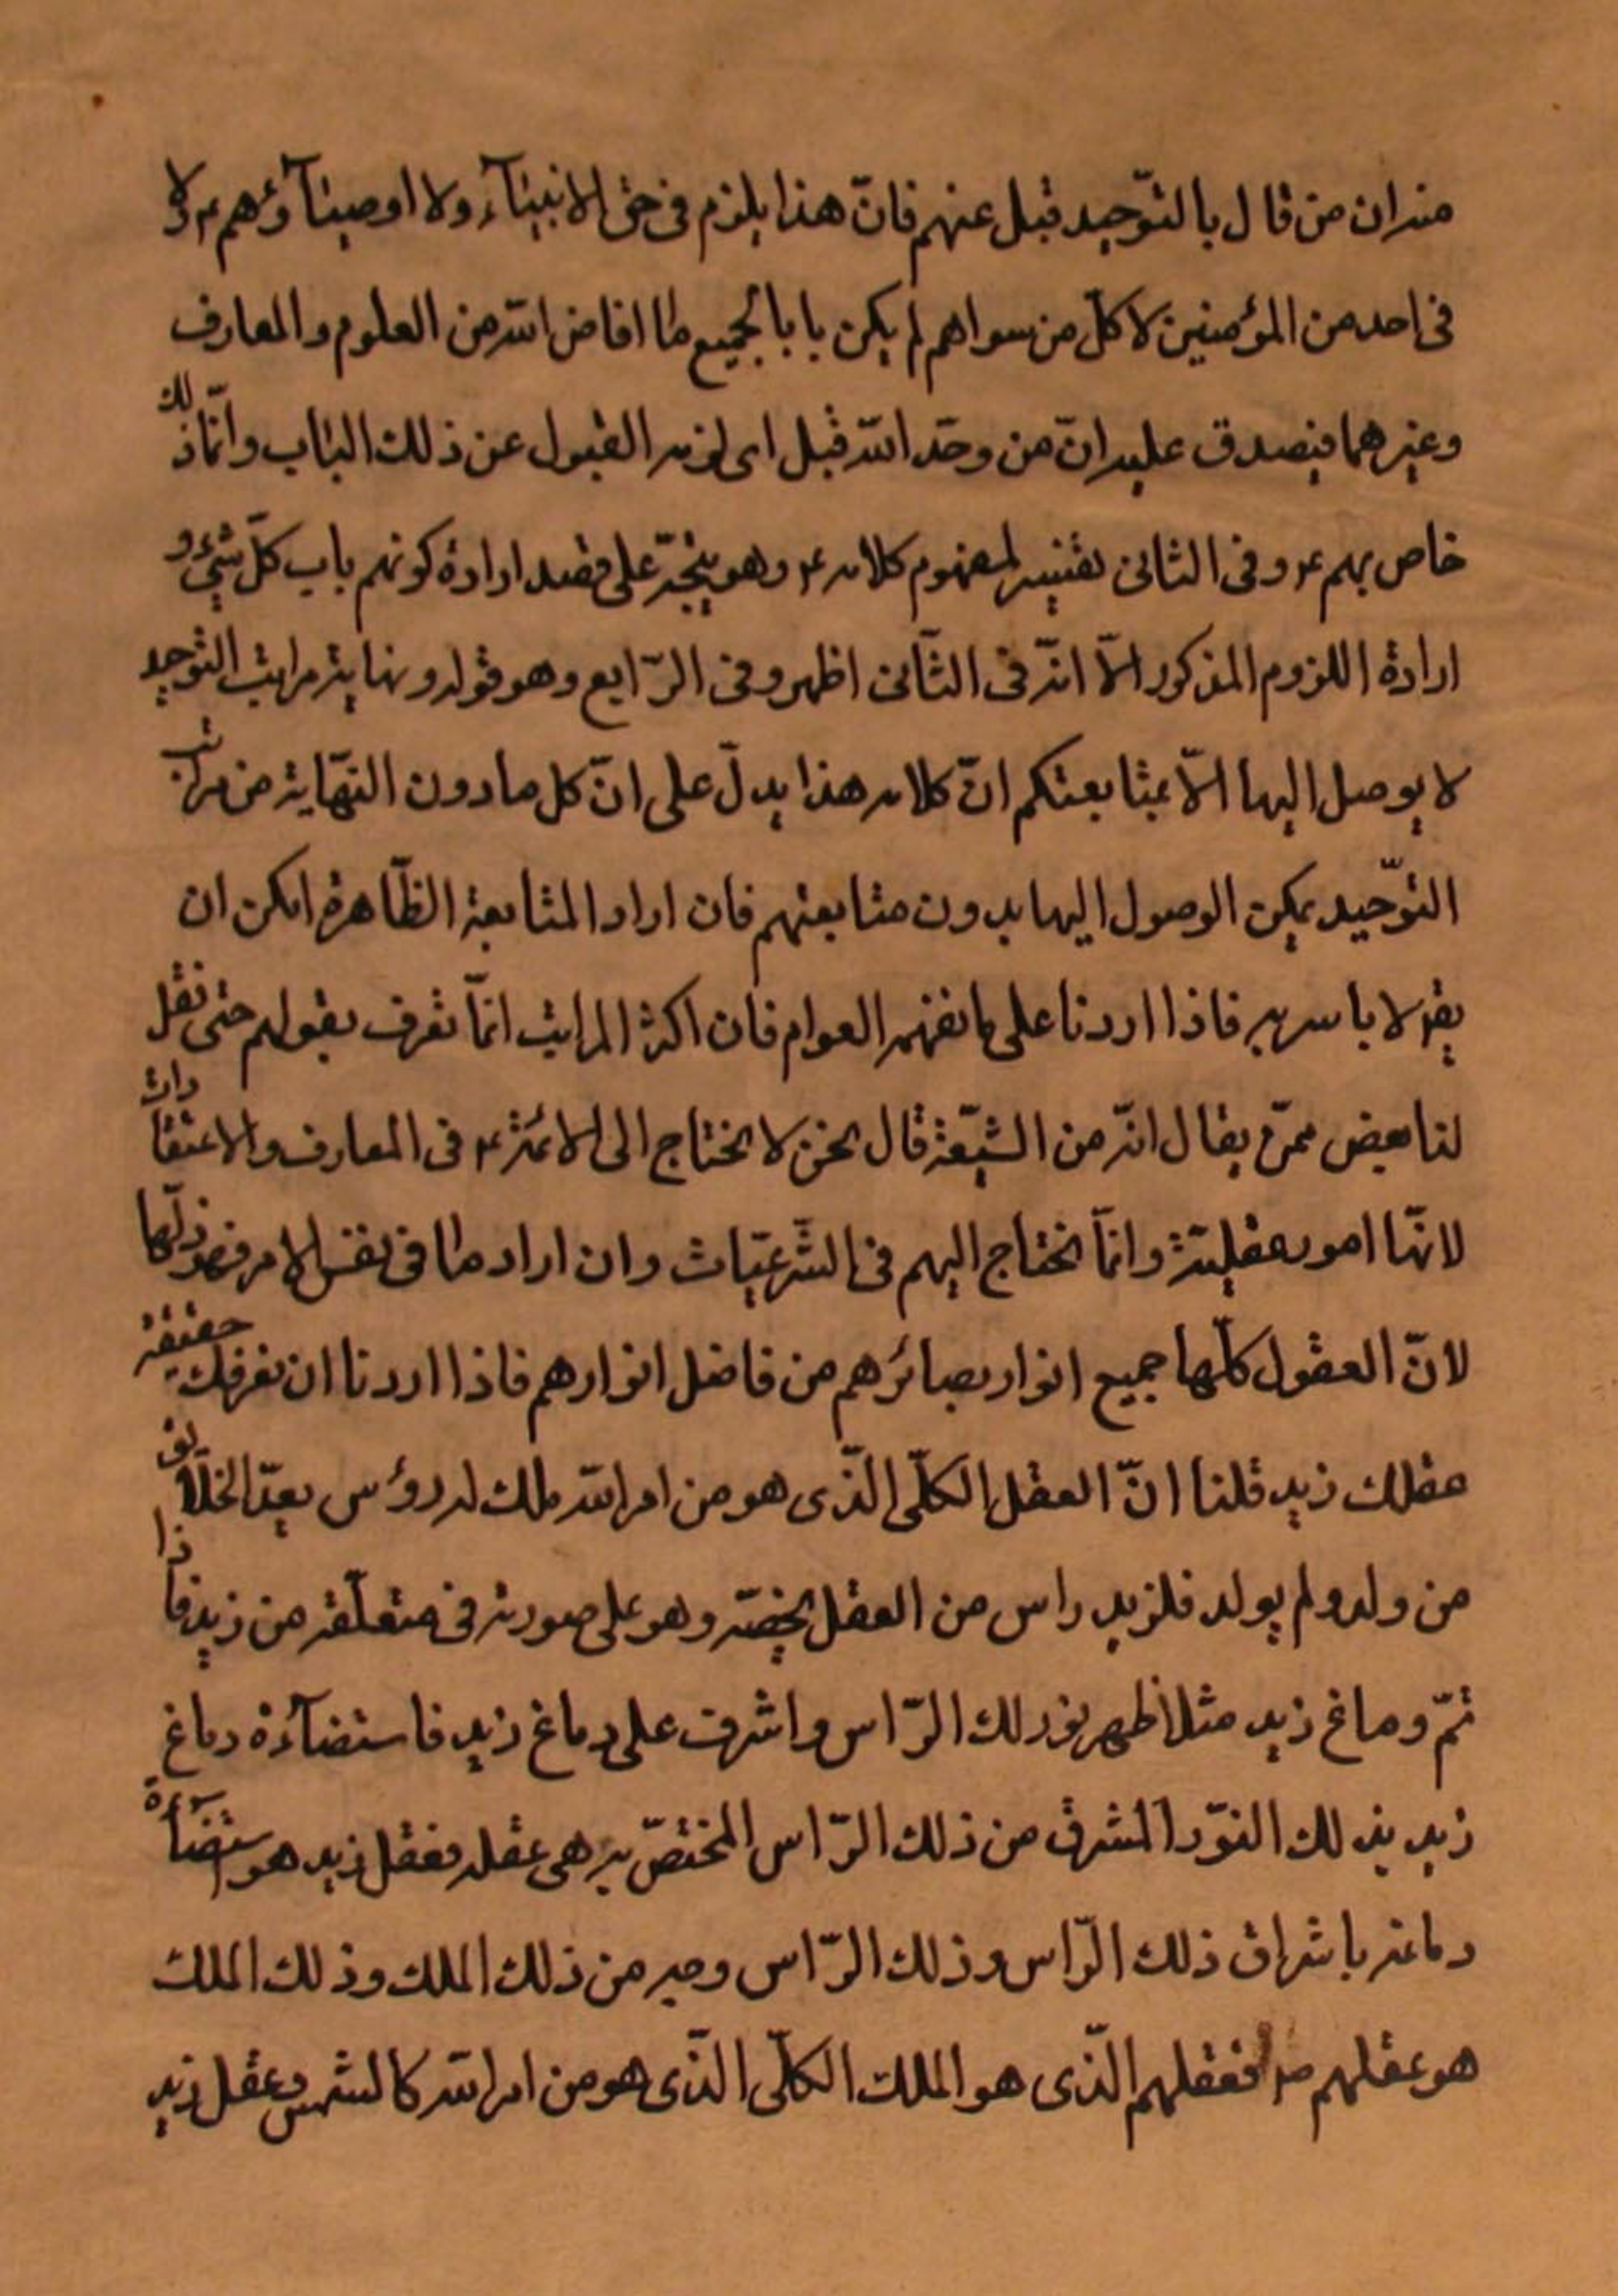 منه ان من قال بالتوّحيد قبل عنهم فانّ هذا يلزم فى حق الانبيآء ولا اوصيآؤهم ع ولا
فى احد من المؤمنين لا كلّ من سواهم لم يكن بابا لجميع ما افاض الله من العلوم والمعارف
وغيرهما فيصدق عليه انّ من وحّد الله قبل اى لزمه القبول عن ذلك الباب وانّما ذلك
خاص بهم ع وفى الثانى تفسير لمفهوم كلامه ع وهو ينجرّ على قصد ارادة كونهم باب كلّ شئ و
ارادة اللزوم المذكور الاّ انّه فى الثّانى اظهر وفى الرّابع وهو قوله ونهاية مراتب التوحيد
لا يوصل اليها الاّ بمتابعتكم انّ كلامه هذا يدلّ على انّ كل ما دون النهّاية من مراتب
التوّحيد يمكن الوصول اليها بدون متابعتهم فان اراد المتابعة الظّاهرة امكن ان
يقر لا باسريه فاذا اردنا على ما تفهمه العوام فان اكثر المراتب انمّا تعرف بقولهم حتى نقل
لنا بعض ممّن يقال انّه من الشيّعة قال نحن لا نحتاج الى الائمّة ع فى المعارف والاعتقادات
لانهّا امور عقليّة وانمّا نحتاج اليهم فى الشّرعيّات وان اراد ما فى نفس الامر فهو
لانّ العقول كلّها جميع انوار بصائرهم من فاضل انوارهم فاذا اردنا ان نعرفك حقيقة
عقلك زيد قلنا انّ العقل الكلّى الذّى هو من امر الله ملك له رؤس بعدّ الخلايق
من ولد ولم يولد فلزيد راس من العقل يخصّه وهو على صورته فى متعلّقه من زيد فاذا
تمّ دماغ زيد مثلا ظهر نور لك الرّاس واشرق على دماغ زيد فاستضآءة دماغ
زيد بذلك النوّر المشرق من ذلك الرّاس المختصّ به هى عقله فعقل زيد هو استضآءة
دماغه باشراق ذلك الرّاس وذلك الرّاس وجه من ذلك الملك وذلك الملك
هو عقلهم ص فعقلهم الذّى هو الملك الكلّى الذّى هو من امر الله كالشمس وعقل زيد